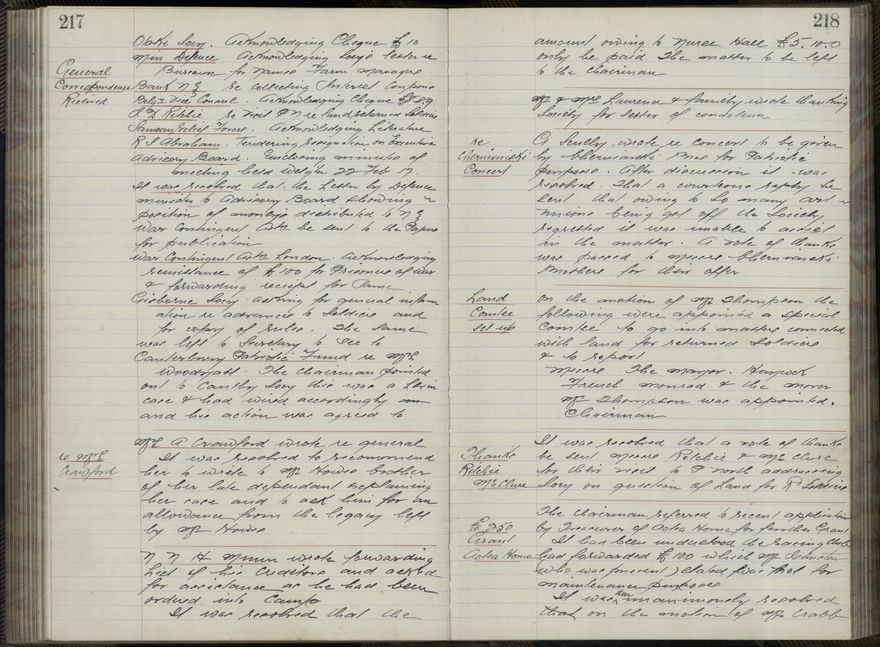 217
Otaki Socy. Acknowledging Cheque £10
Min Defence Acknowledging Socy's letter re
General
Bureau for Names Farm Managers
Correspondence
Bank N Z re Collecting Interest Coupons
Received
Belgn Vice Consul. Acknowledging Cheque
Ritchie re visit P N re land returned Soldiers
Samoan Relief Force. Acknowledging Literature
R S Abraham. Tendering resignation on Executive
Advisory Board. Enclosing minutes of
meeting held Welgtn 22 Feb 17.
It was resolved that the letter by Defence
minister to Advisory Board showing
position of moneys distributed to N Z
War Contingent Assn be sent to the Papers
for publication
War Contingent Assn London. Acknowledging
remittance of £100 for Prisoners of War
& forwarding receipt for same
Gisborne Socy. asking for general inform
ation re advances to Soldiers and
for copy of rules. The same
was left to Secretary to see to
Canterbury Patriotic Fund re Mrs
Woodyatt. The Chairman pointed
out to Cantby Socy this was a Levin
case & had wired accordingly
and his action was agreed to
re Mrs
Crawford
Mrs A Crawford wrote re general
It was resolved to recommend
her to write to Mr Howie brother
of her late dependant explaining
her case and to ask him for an
allowance from the legacy left
by Mr Howie
N N H Munn wrote forwarding
list of his Creditors and asked
for assistance as he had been
ordered into Camp
It was resolved that the
218
amount owing to Nurse Hall £5.10.0
only be paid The matter to be left
to the Chairman
Mr & Mrs Laurence & family wrote thanking
Society for letter of condolence
re
Cherniavski
Concert
A Scully wrote re concert to be given
by Cherniavski Bros for Patriotic
purposes. After discussion it was
resolved. That a courteous reply be
sent that owing to so many
being got off the Society
regretted it was unable to assist
in the matter. A vote of thanks
was passed to Messrs Cherniavski
Brothers for their offer
Land
Comtee
set up
On the motion of Mr Thompson the
following were appointed a special
Comtee to go into matters connected
with land for returned Soldiers
& to report
Messrs The Mayor.
French Monrad & the mover
Mr Thompson was appointed
Chairman
Thanks
Ritchie
McClure
It was resolved that a vote of thanks
be sent Messrs Ritchie & McClure
for their visit to P North addressing
Socy on question of Land for R Soldiers
£250
Grant
Aotea Home
The Chairman referred to recent application
by Treasurer of Aotea Home for further Grant
It had been understood the racing Club
had forwarded £100 which Mr
who was present stated was not for
maintenance purposes
It was then unanimously resolved
that on the motion of Mr Crabb